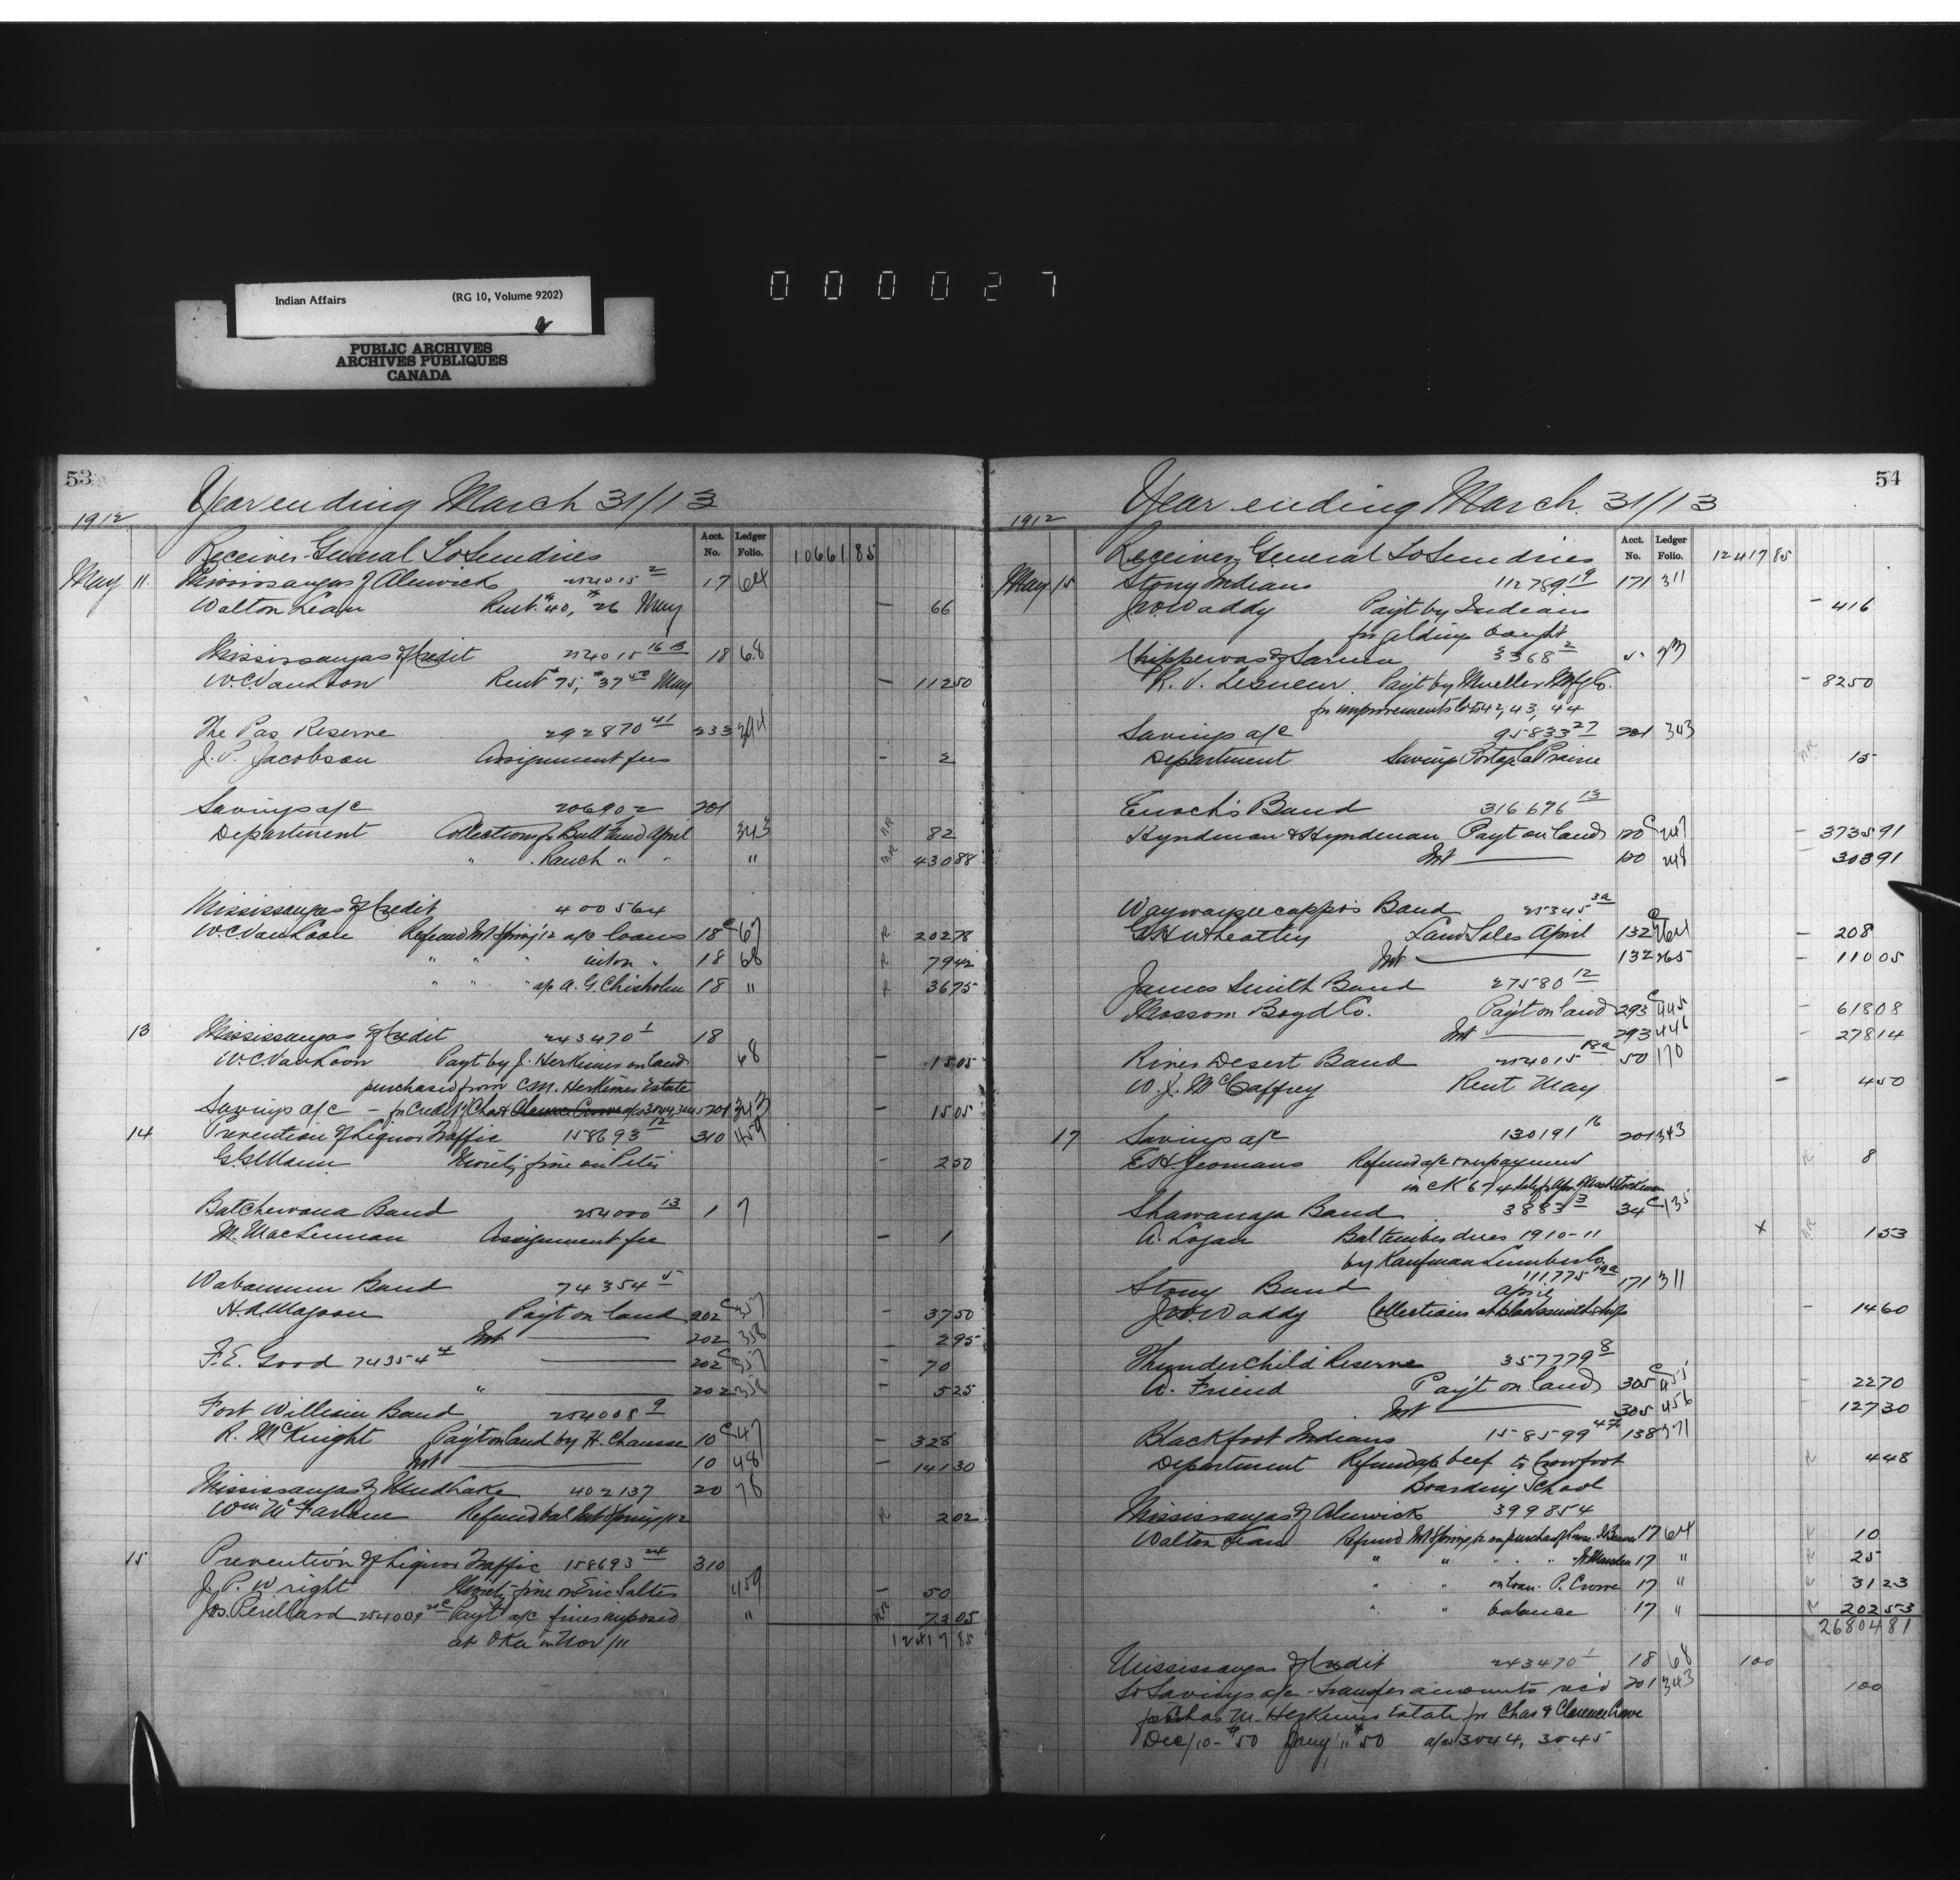 000027
Indian Affairs (RG 10, Volume 9202)
PUBLIC ARCHIVES
ARCHIVES PUBLIQUES
CANADA
53
Year ending March 31/13
1912
Acct. No. Ledger Folio.
Receiver General To Sundries 10661 85
May 11 Mississaugas of Alnwick 254015 2 17 64
Walton Lean Rent $40, $26 May – 66
Mississaugas of Credit 254015 16B 18 68
W.C. Van Loon Rent $75, $37 50 May – 112 50
The Pas Reserve 292870 41 233
J.P. Jacobson Assignment fees – 2
Savings a/c 206902 201
Department Collections for Bull Fund April 343 NR 82
" Ranch " " " NR 430 88
Mississaugas of Credit 400564
W.C. Van Loon Refund Int Spring '12 a/c loans 18 C 67 R 202 78
" " " " 18 68 R 79 42
" " " a/c A.G. Chisholm 18 " R 36 75
13 Mississaugas of Credit 243470 1 18
W.C. Van Loon Payt by J. Herkimer on land 68 – 15 05
purchased from C.M. Herkimer Estate
Savings a/c – for Credit of Chas & Clarence Crowe a/cs 3044, 3045 201 343 – 15 05
14 Prevention of Liquor Traffic 158693 12 310 459
G.G. Mann Moiety fine on Peter – 2 50
Batchewana Band 254000 13 1 7
M. MacLennan Assignment fee – 1
Wabamun Band 74354 5
H.A. Magoon Payt on land 202 C 357 – 37 50
Int 202 358 – 2 95
F.E. Good 74354 4 202 C 357 – 70
" 202 358 – 5 25
Fort William Band 254008 9
R. McKnight Payt on land by H. Chausse 10 C 47 – 328
Int 10 48 – 141 30
Mississaugas of Mud Lake 402137 20 78
Wm McFarlane Refund bal Int Spring /12 R 2 02
15 Prevention of Liquor Traffic 158693 24 310
J.P. Wright Moiety fine on Eric Salter 459 – 50
Jos. Perillard 254009 20C Payt a/c fines imposed " NR 73 05
at Oka in Nov /11 12417 85
54
Year ending March 31/13
1912
Acct. No. Ledger Folio.
Receiver General To Sundries 12417 85
May 15 Stony Indians 112789 19 171 311
J.W. Waddy Payt by Indians – 416
for geldings bought
Chippewas of Sarnia 3368 2 5
R. V. Lesueur Payt by Mueller Mfg Co. – 82 50
for improvements lots 42, 43, 44
Savings a/c 95833 27 201 343
Department Savings Portage la Prairie NR 15
Enoch's Band 316676 13
Hyndman & Hyndman Payt on land 120 C 247 – 3735 91
Int 120 248 303 91
Waywayseecappo's Band 25345 3a
G.H. Wheatley Land Sales April 132 C 264 – 208
Int 132 265 – 110 05
James Smith Band 27580 12
Mossom Boyd Co. Payt on land 293 C 445 – 618 08
Int 293 446 – 278 14
River Desert Band 254015 18a 50 170
W.J. McCaffrey Rent May – 4 50
17 Savings a/c 130191 16 201 343
E.H. Yeomans Refund a/c overpayment R 8
in CK 674
Shawanaga Band 3883 3 34 C 135
A. Logan Bal timber dues 1910-11 x NR 1 53
by Kaufman Lumber Co.
Stony Band 111775 19a 171 311
J.W. Waddy Collections at blacksmith shop April – 14 60
Thunderchild Reserve 357779 8
A. Friend Payt on land 305 C 455 – 22 70
Int 305 456 – 127 30
Blackfoot Indians 158599 47 138 271
Department Refund a/c beef to Crowfoot R 4 48
Boarding School
Mississaugas of Alnwick 399854
Walton Lean Refund Int Spring /12 on purchase of 17 64 R 10
" " " " 17 " R 25
" " on loan P. Crowe 17 " R 31 23
" " balance 17 " R 202 53
26804 81
Mississaugas of Credit 243470 1 18 68 100
To Savings a/c – Transfer amounts rec'd 201 343 100
for Chas M. Herkimer Estate for Chas & Clarence Crowe
Dec/10 – $50 Jany/11 $50 a/cs 3044, 3045